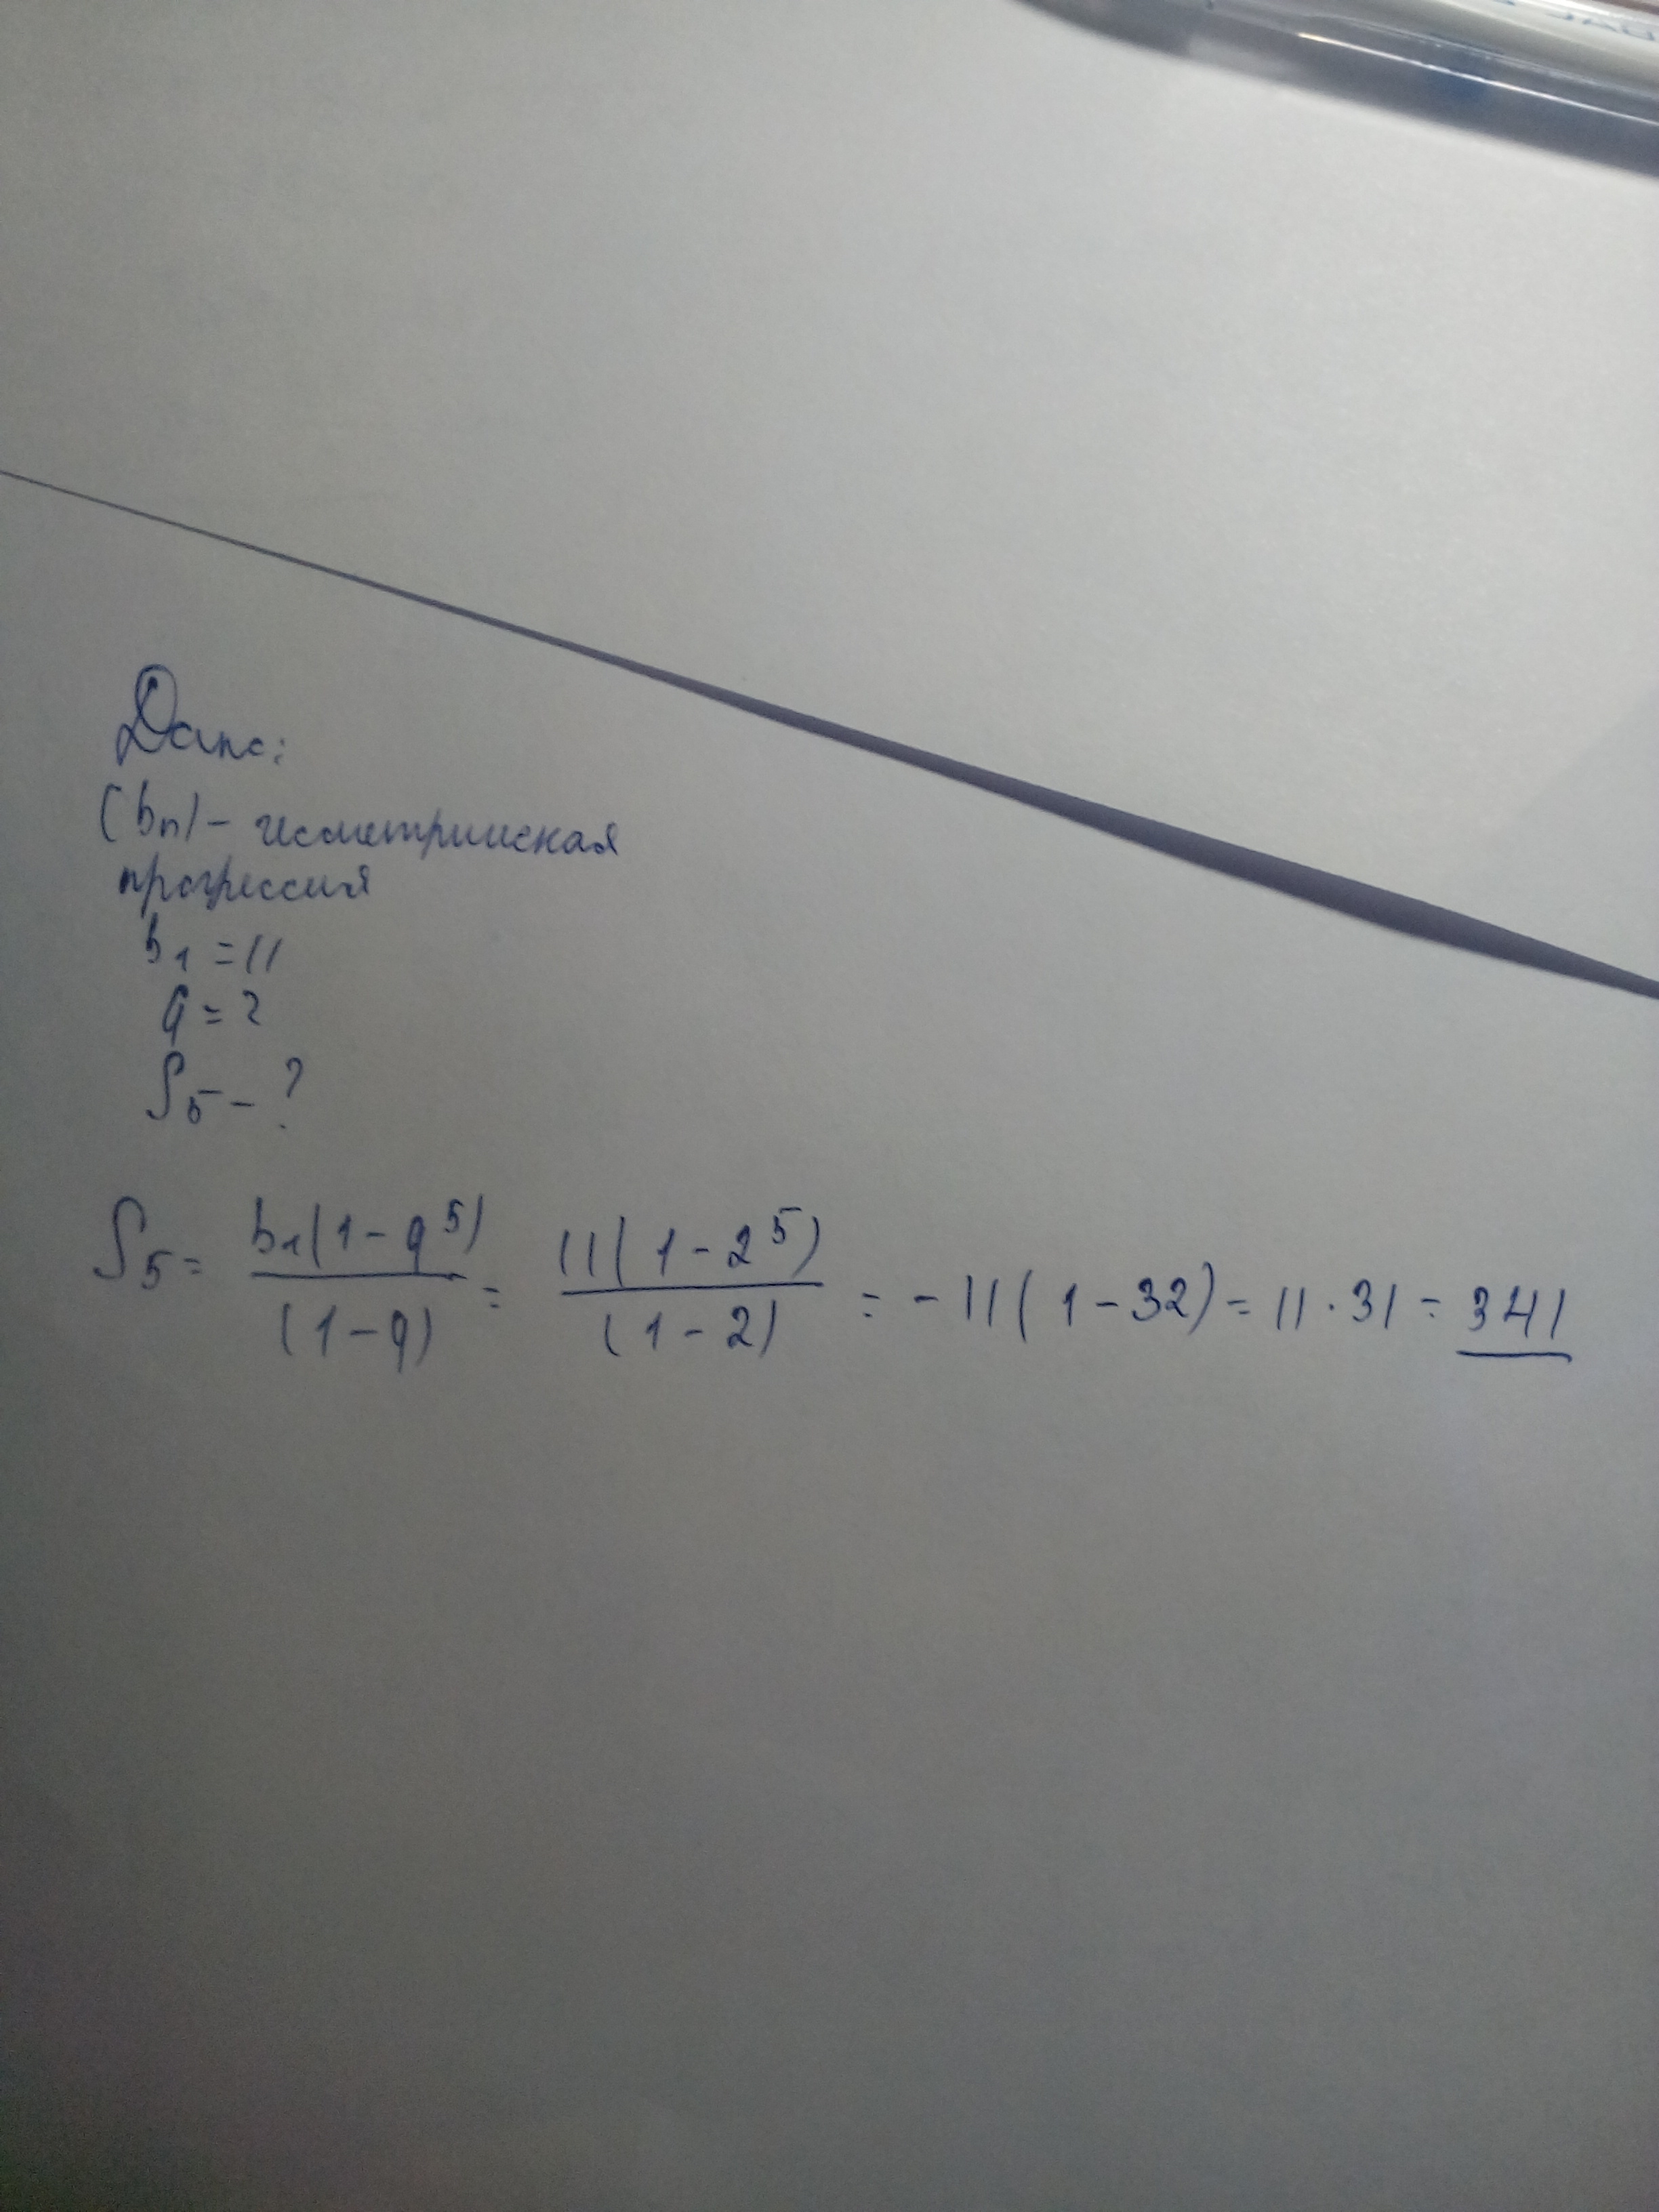 Дано:
(bn) - геометрическая
прогрессия
b1 = 11
q = 2
S5 - ?
S5 = b1(1-q^5)/(1-q) = 11(1-2^5)/(1-2) = -11(1-32) = 11·31 = 341